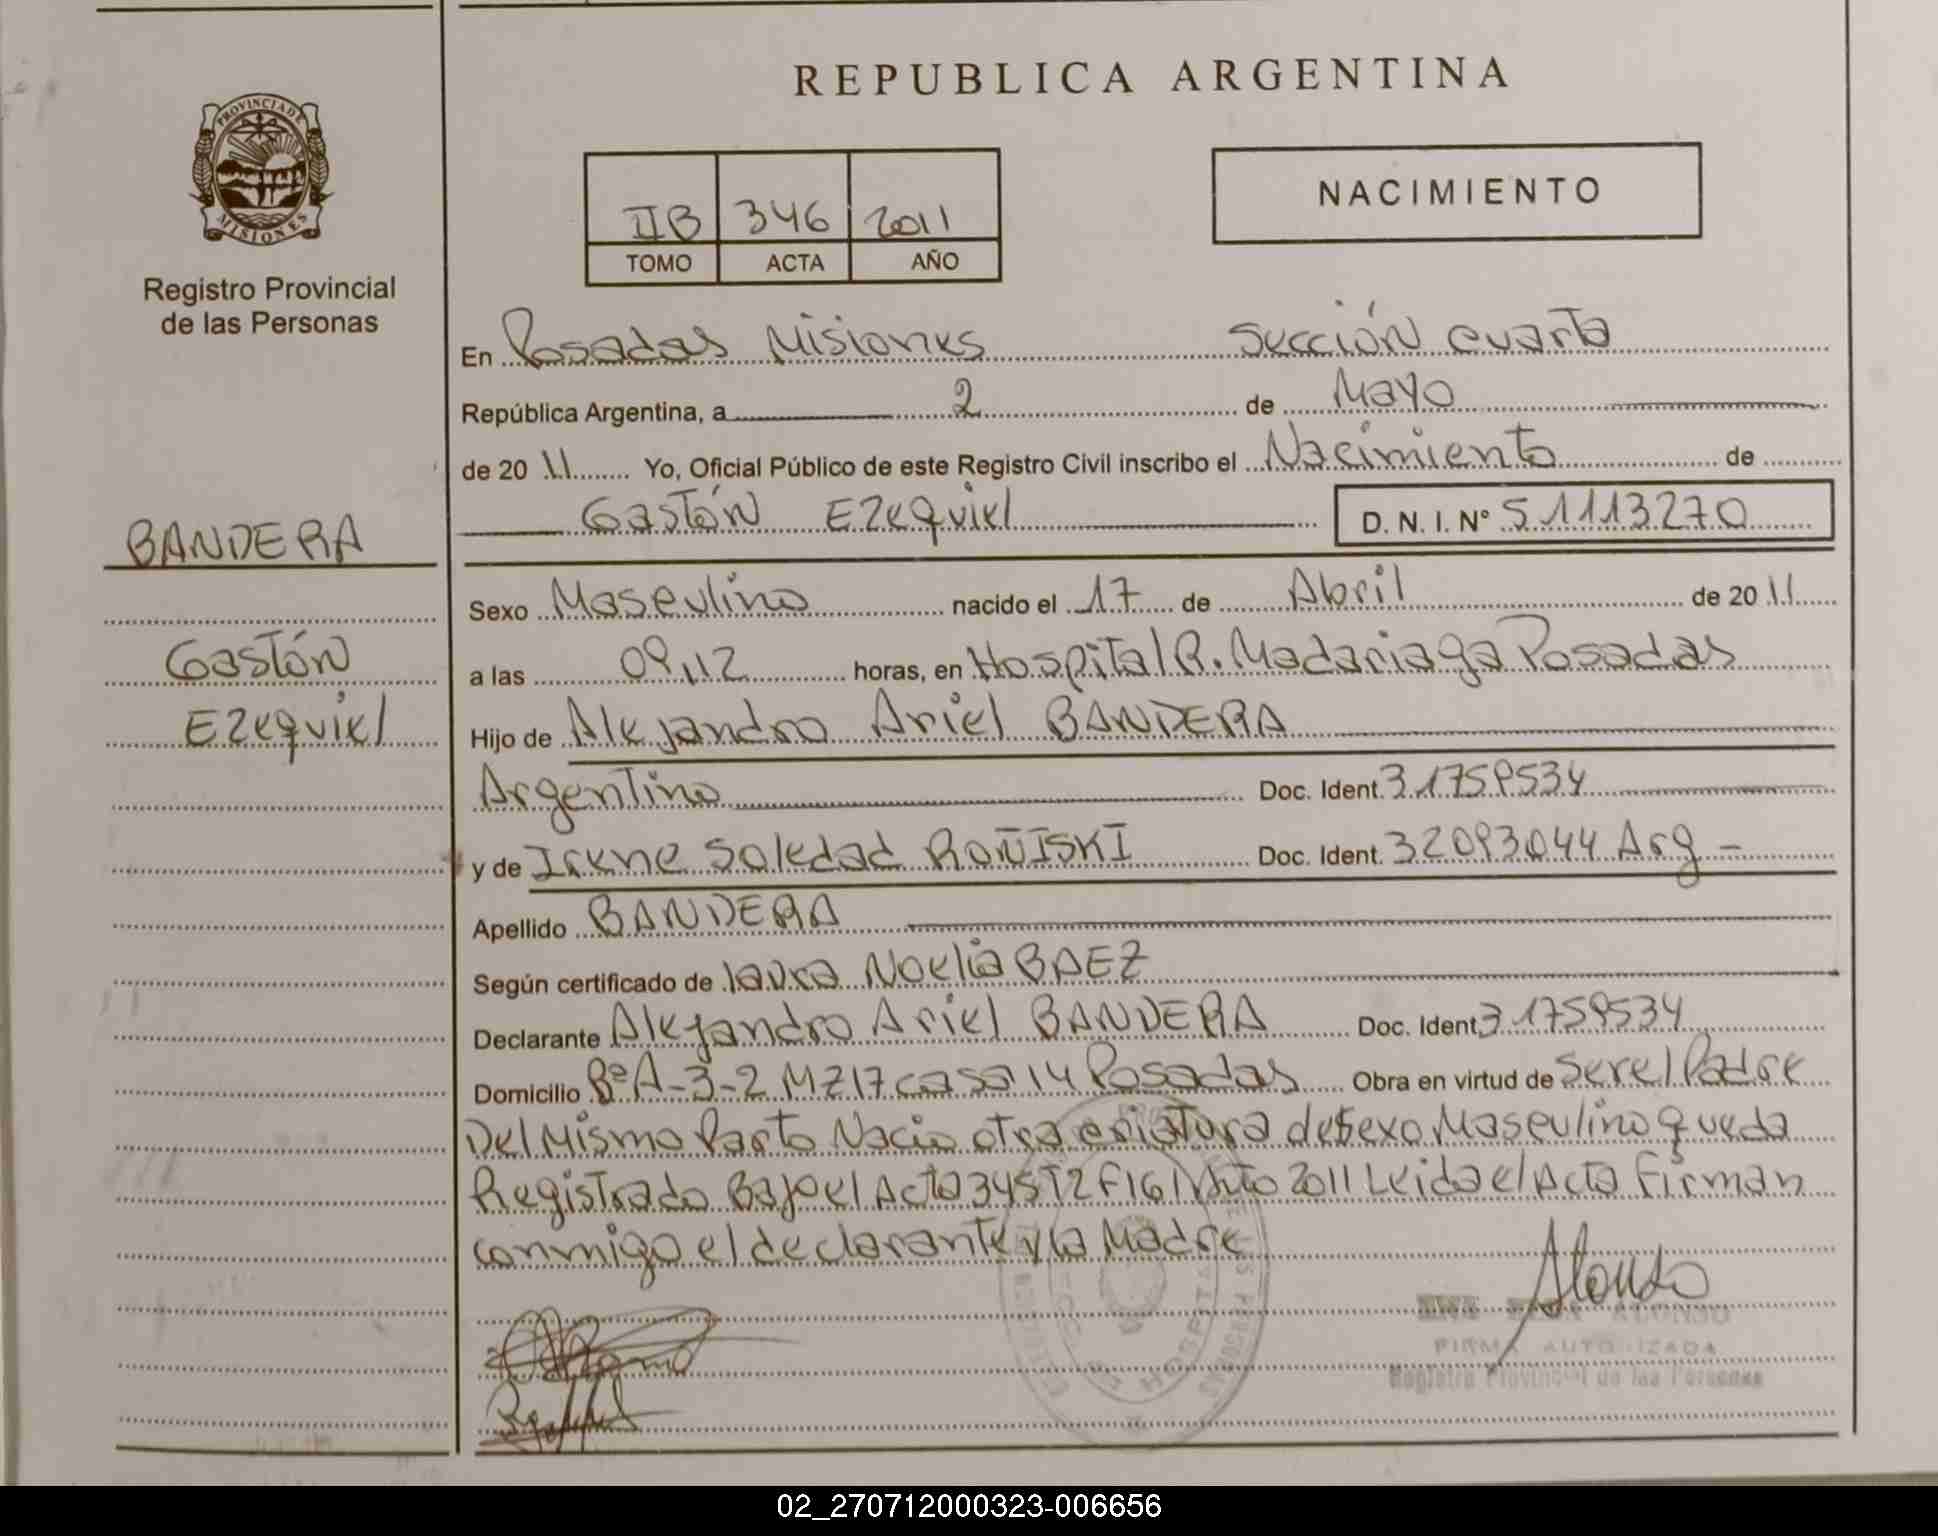 REPUBLICA ARGENTINA
PROVINCIA DE
MISIONES
Registro Provincial
de las Personas
IIB 346 2011
TOMO ACTA AÑO
NACIMIENTO
En Posadas Misiones Sección cuarta
República Argentina, a 2 de Mayo
de 2011 Yo, Oficial Público de este Registro Civil inscribo el Nacimiento de
Gastón Ezequiel D. N. I. N° 51113270
BANDERA
Gastón
Ezequiel
Sexo Masculino nacido el 17 de Abril de 2011
a las 09,12 horas, en Hospital R. Madariaga Posadas
Hijo de Alejandro Ariel BANDERA
Argentino Doc. Ident. 31759534
y de Irene Soledad ROÑISKI Doc. Ident. 32093044 Arg -
Apellido BANDERA
Según certificado de laura Noelia BAEZ
Declarante Alejandro Ariel BANDERA Doc. Ident 31759534
Domicilio Bº A-3-2 MZ17 casa 14 Posadas Obra en virtud de ser el Padre
Del Mismo Parto Nacio otra criatura de sexo Masculino queda
Registrado Bajo el Acta 345 T2 F161 Año 2011 Leida el Acta Firman
conmigo el declarante y la Madre
Alonso
ALONSO
FIRMA AUTORIZADA
Registro Provincial de las Personas
02_270712000323-006656